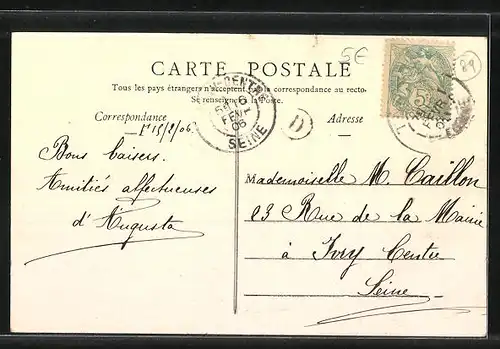 5E
29
CARTE POSTALE
Tous les pays étrangers n'acceptent pas la correspondance au recto.
Se renseigner à la Poste.
Correspondance
Adresse
15/2/06
SEINE
06
D
Bons baisers.
Amitiés affectueuses
d'Augusta
Mademoiselle M. Caillon
23 Rue de la Mairie
à Ivry Centre
Seine